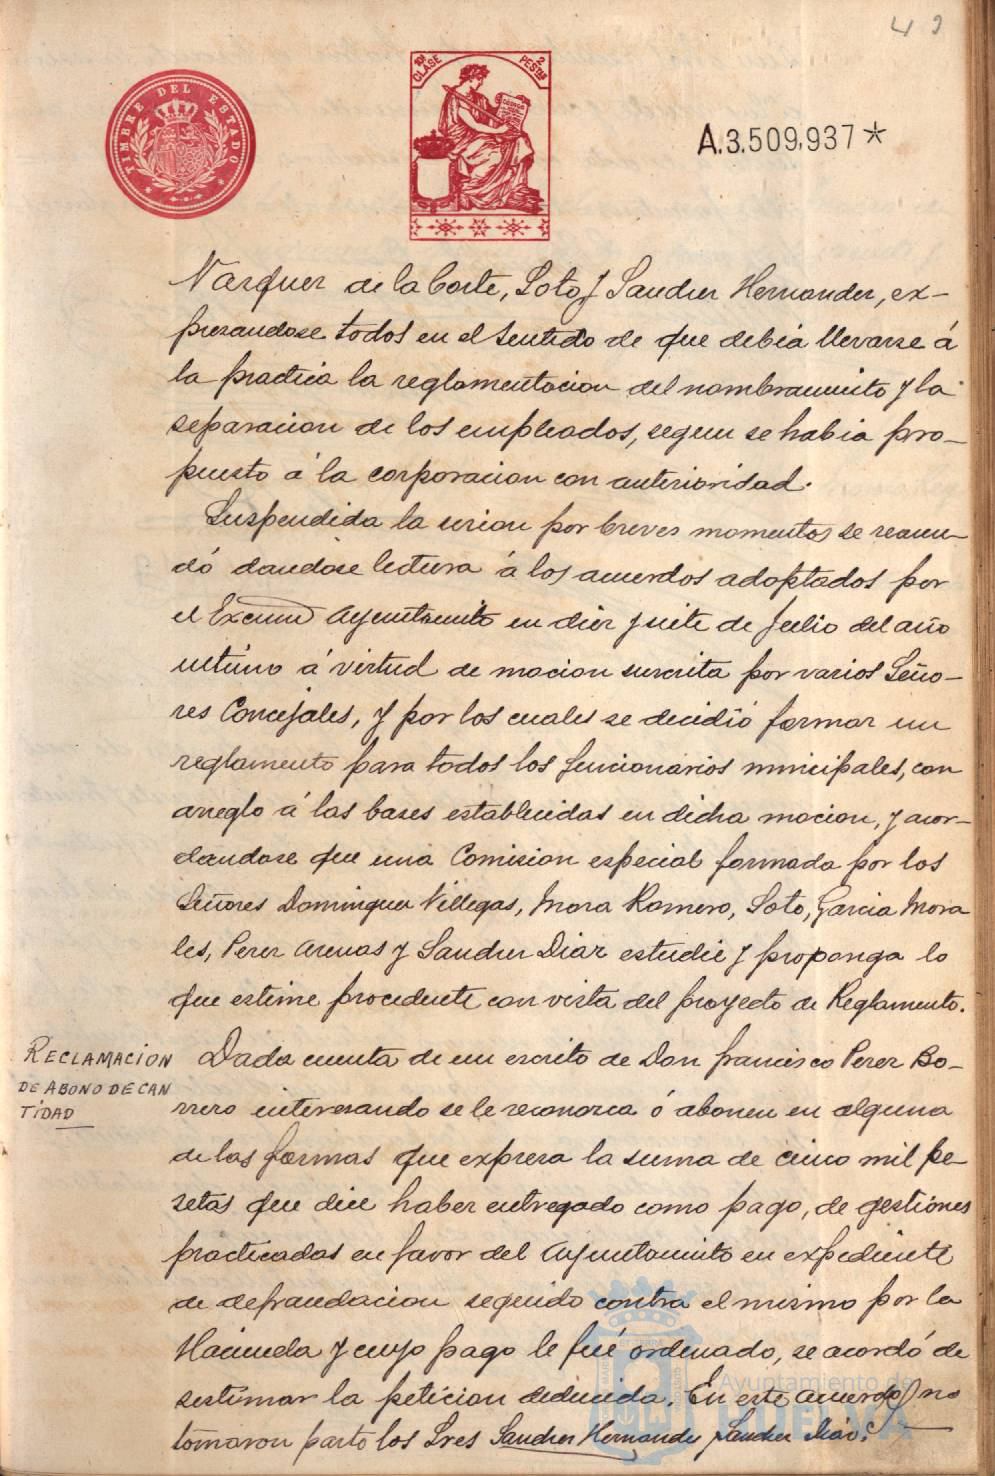 49
TIMBRE DEL ESTADO
10ª CLASE 2 PESTAS
A.3.509,937*
Vazquez de la Corte, Soto y Sanchez Hernandez, ex-
presandose todos en el sentido de que debia llevarse á
la practica la reglamentacion del nombramiento y la
separacion de los empleados, segun se habia pro-
puesto á la corporacion con anterioridad.
Suspendida la sesion por breves momentos se reanu-
dó dandose lectura á los acuerdos adoptados por
el Excmo Ayuntamiento en diez y siete de Julio del año
ultimo á virtud de mocion suscrita por varios Seño-
res Concejales, y por los cuales se decidió formar un
reglamento para todos los funcionarios municipales, con
arreglo á las bases establecidas en dicha mocion, y acor-
dandose que una Comision especial formada por los
Señores Dominguez Villegas, Mora Romero, Soto, Garcia Mora
les, Perez Arenas y Sanchez Diaz estudie y proponga lo
que estime procedente con vista del proyecto de Reglamento.
RECLAMACION
DE ABONO DE CAN
TIDAD
Dada cuenta de un escrito de Don Francisco Perez Bo-
rrero interesando se le reconozca ó abonen en alguna
de las formas que expresa la suma de cinco mil pe-
setas que dice haber entregado como pago, de gestiones
practicadas en favor del Ayuntamiento en expediente
de defraudacion seguido contra el mismo por la
Hacienda y cuyo pago le fué ordenado, se acordó de
sestimar la peticion deducida. En este acuerdo no
tomaron parte los Sres Sanchez Hernandez y Sanchez Diaz.
Ayuntamiento de
HUELVA